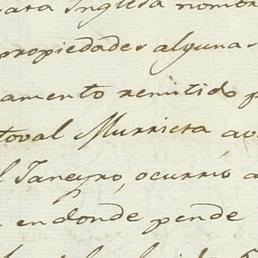 Casa Inglesa nombr
propiedades algunas
amento remitido p
toval Murrieta au
l Janeyro, ocurrió a
endonde pende